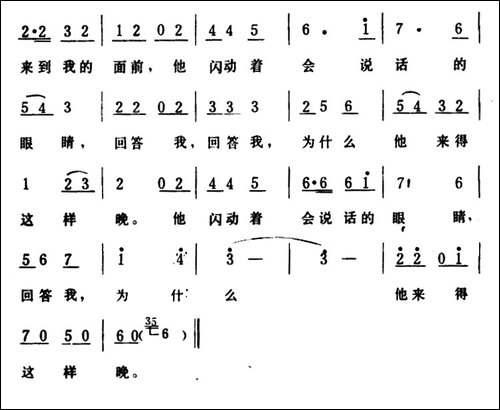 2·2 3 2 | 1 2 0 2 | 4 4 5 | 6 · i | 7 · 6 |
来到我的 面前，他 闪动着 会 说 话 的
5 4 3 | 2 2 0 2 | 3 3 3 | 2 5 6 | 5 4 3 2 |
眼 睛， 回答 我，回答我， 为什么 他 来得
1 2 3 | 2 0 2 | 4 4 5 | 6·6 6 i | 7 6 |
这 样 晚。 他 闪动着 会说话的 眼 睛，
5 6 7 | i 4̇ | 3̇ — | 3̇ — | 2̇ 2̇ 0 i |
回答我， 为 什 么 他来 得
7 0 5 0 | 6 0 (35 6 ) ‖
这 样 晚。